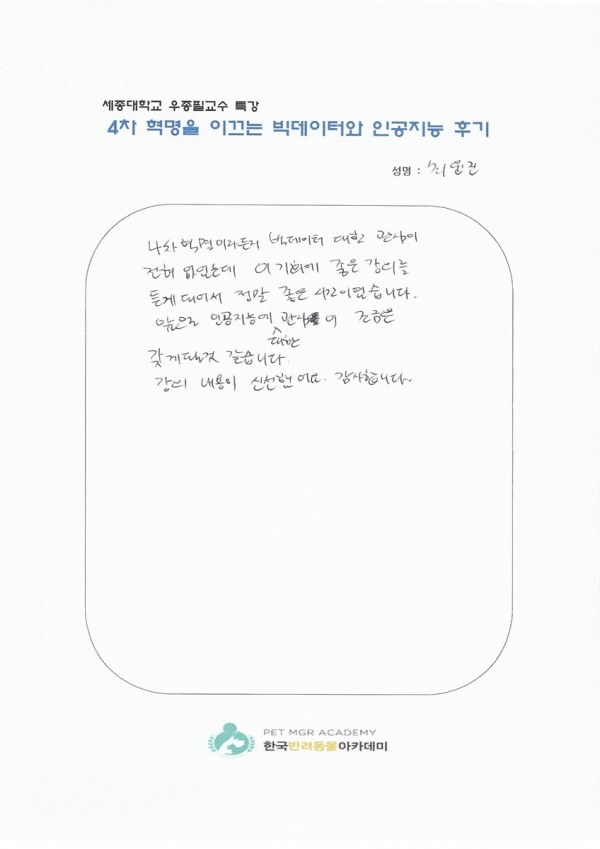 세종대학교 우종필교수 특강
4차 혁명을 이끄는 빅데이터와 인공지능 후기
성명 : 최윤진
4차 혁명이라든지 빅데이터 대한 관심이
전혀 없었는데 이 기회에 좋은 강의를
듣게 되어서 정말 좋은 시간이었습니다.
앞으로 인공지능에 대한 관심이 조금은
갖게될것 같습니다.
강의 내용이 신선했어요. 감사합니다.
PET MGR ACADEMY
한국반려동물아카데미